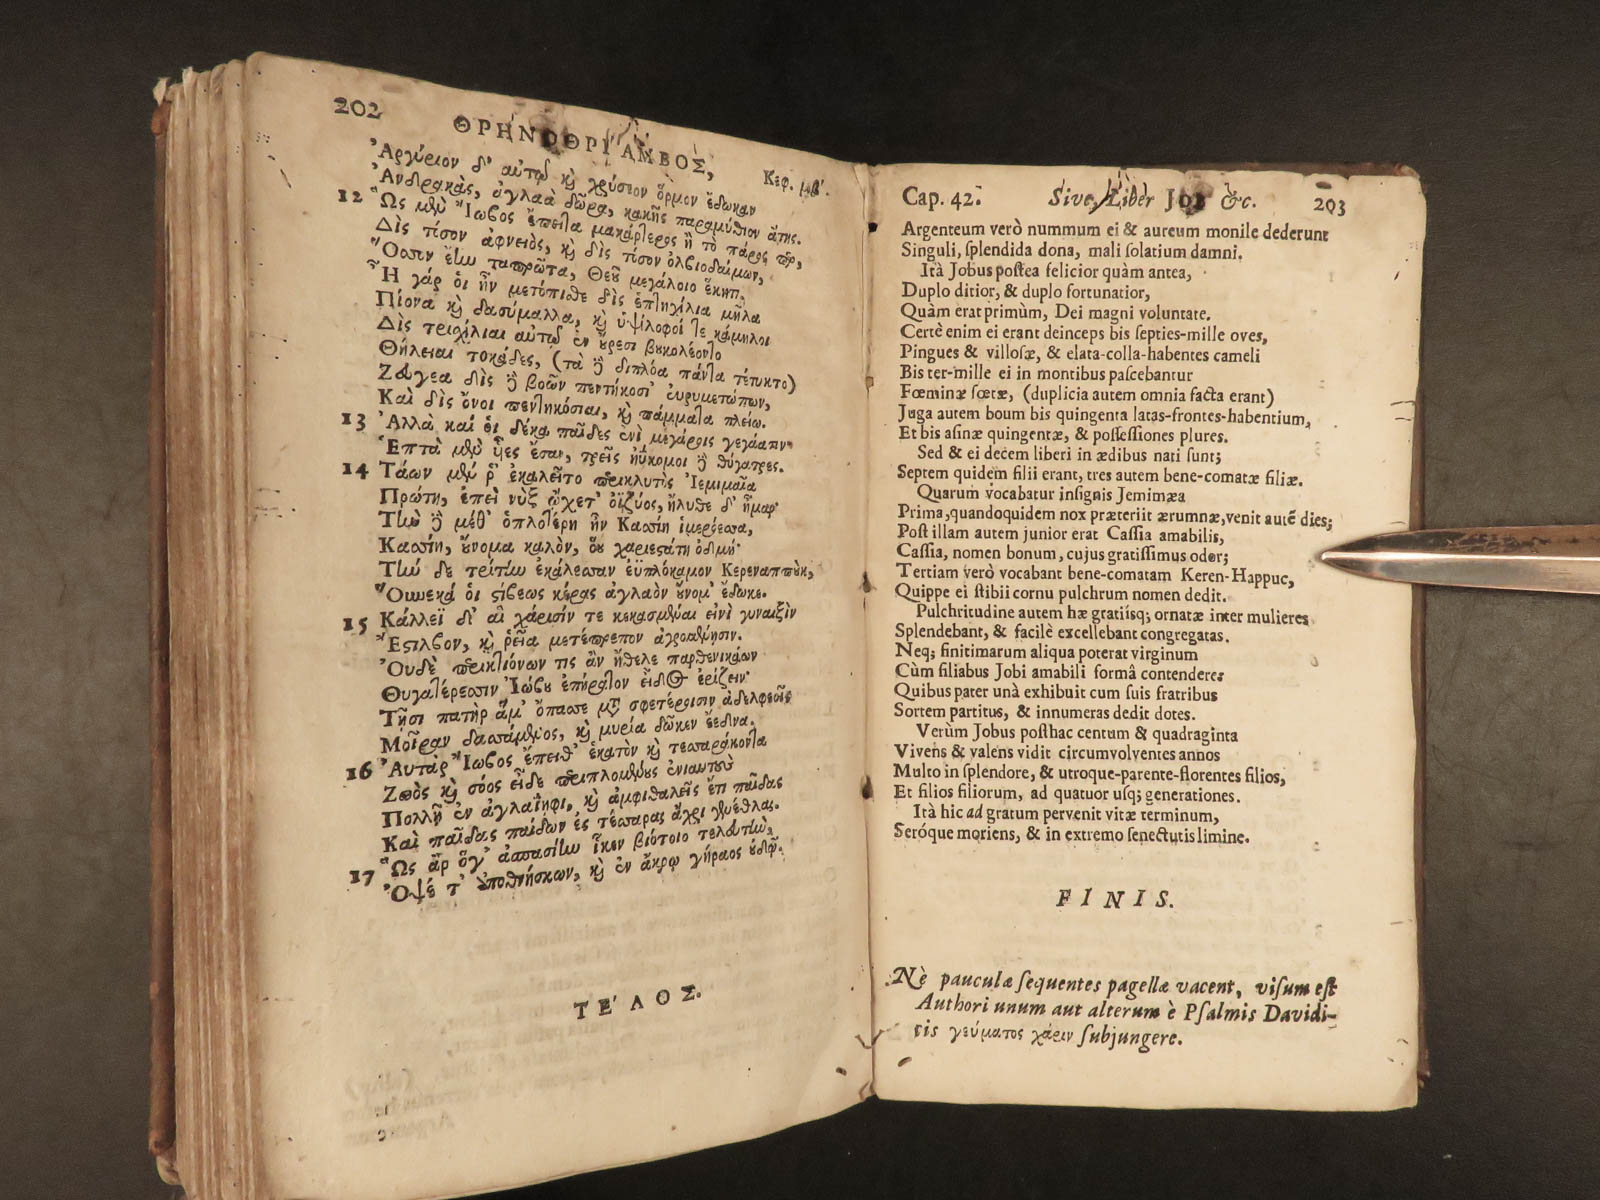 202 ΘΡΗΝΟΘΡΙΑΜΒΟΣ, Κεφ. μβ'.
Ἀργύριον δ' αὐτῷ κỳ χρύσεον ὅρμον ἔδωκαν
Ἀνδρακὰς, ἀγλαὰ δῶρα, κακῆς παραμύθιον ἄτης.
12 Ὣς μὲν Ἴωβος ἔπειτα μακάρτερος ἢ τὸ πάρος περ,
Δὶς τίσον ἀφνειὸς, κỳ δὶς τίσον ὀλβιοδαίμων,
Ὅσσιν ἔην ταπρῶτα, Θεοῦ μεγάλοιο ἕκητι.
Ἦ γάρ οἱ ἦν μετόπισθε δὶς ἑπταχίλια μῆλα
Πίονα κỳ δασύμαλλα, κỳ ὑψίλοφοί τε κάμηλοι
Δὶς τρισχίλιαι αὐτῷ ἐν οὔρεσι βυκολέοντο
Θήλειαι τοκάδες, (τὰ δὲ διπλόα πάντα τέτυκτο)
Ζεύγεα δὶς δὲ βοῶν πεντήκοσι' εὐρυμετώπων,
Καὶ δὶς ὄνοι πεντηκόσιαι, κỳ πάμματα πλείω.
13 Ἀλλὰ καί οἱ δέκα παῖδες ἐνὶ μεγάροις γεγάασιν·
Ἑπτὰ μὲν υἷες ἔσαν, τρεῖς ἠΰκομοι δὲ θύγατρες.
14 Τάων μέν ῥ' ἐκαλεῖτο περικλυτὸς Ἰεμιμαῖα
Πρώτη, ἐπεὶ νὺξ ᾤχετ' ὀϊζύος, ἤλυθε δ' ἦμαρ·
Τὴν δὲ μέθ' ὁπλοτέρη ἦν Κασσίη ἱμερόεσσα,
Κασσίη, οὔνομα καλὸν, ὅυ χαριεστάτη ὀδμή·
Τὴν δὲ τρίτην ἐκάλεσσαν ἐϋπλόκαμον Κερεναππὺκ,
Οὕνεκά οἱ στίβεως κέρας ἀγλαὸν οὔνομ' ἔδωκε.
15 Κάλλεϊ δ' αἳ χάρισίν τε κεκασμέναι εἰνὶ γυναιξὶν
Ἔστιλβον, κỳ ῥεῖα μετέπρεπον ἀγρομένῃσιν.
Ὀυδὲ περικτιόνων τις ἂν ἤθελε παρθενικάων
Θυγατέρεσσιν Ἰώβου ἐπήρατον εἶδος ἐρίζειν·
Τῇσι πατὴρ ἅμ' ὄπασσε μετὰ σφετέροισιν ἀδελφεοῖς
Μοῖραν δασσάμενος, κỳ μυρία δῶκεν ἔεδνα.
16 Αὐτὰρ Ἴωβος ἔπειθ' ἑκατὸν κỳ τεσσαράκοντα
Ζωὸς κỳ σόος εἶδε περιπλομένους ἐνιαυτοὺς
Πολλῇ ἐν ἀγλαΐηφι, κỳ ἀμφιθαλεῖς ἔπι παῖδας
Καὶ παῖδας παίδων ἐς τέσσαρας ἄχρι γενέθλας.
17 Ὣς ἄρ ὅγ' ἀσπασίην ἷκεν βιότοιο τελευτὴν,
Ὀψέ τ' ἀποθνήσκων, κỳ ἐν ἄκρῳ γήραος οὐδῷ.
ΤΕΛΟΣ.
Cap. 42. Sive, Liber JOB &c. 203
Argenteum verò nummum ei & aureum monile dederunt
Singuli, splendida dona, mali solatium damni.
Ità Jobus postea felicior quàm antea,
Duplo ditior, & duplo fortunatior,
Quàm erat primùm, Dei magni voluntate.
Certè enim ei erant deinceps bis septies-mille oves,
Pingues & villosæ, & elata-colla-habentes cameli
Bis ter-mille ei in montibus pascebantur
Fœminæ fœtæ, (duplicia autem omnia facta erant)
Juga autem boum bis quingenta latas-frontes-habentium,
Et bis asinæ quingentæ, & possessiones plures.
Sed & ei decem liberi in ædibus nati sunt;
Septem quidem filii erant, tres autem bene-comatæ filiæ.
Quarum vocabatur insignis Jemimæa
Prima, quandoquidem nox præteriit ærumnæ, venit autē dies;
Post illam autem junior erat Cassia amabilis,
Cassia, nomen bonum, cujus gratissimus odor;
Tertiam verò vocabant bene-comatam Keren-Happuc,
Quippe ei stibii cornu pulchrum nomen dedit.
Pulchritudine autem hæ gratiísq; ornatæ inter mulieres
Splendebant, & facilè excellebant congregatas.
Neq; finitimarum aliqua poterat virginum
Cùm filiabus Jobi amabili formâ contendere:
Quibus pater unà exhibuit cum suis fratribus
Sortem partitus, & innumeras dedit dotes.
Verùm Jobus posthac centum & quadraginta
Vivens & valens vidit circumvolventes annos
Multo in splendore, & utroque-parente-florentes filios,
Et filios filiorum, ad quatuor usq; generationes.
Ità hic ad gratum pervenit vitæ terminum,
Seróque moriens, & in extremo senectutis limine.
FINIS.
Nè pauculæ sequentes pagellæ vacent, visum est
Authori unum aut alterum è Psalmis Davidi-
cis γεύματος χάριν subjungere.